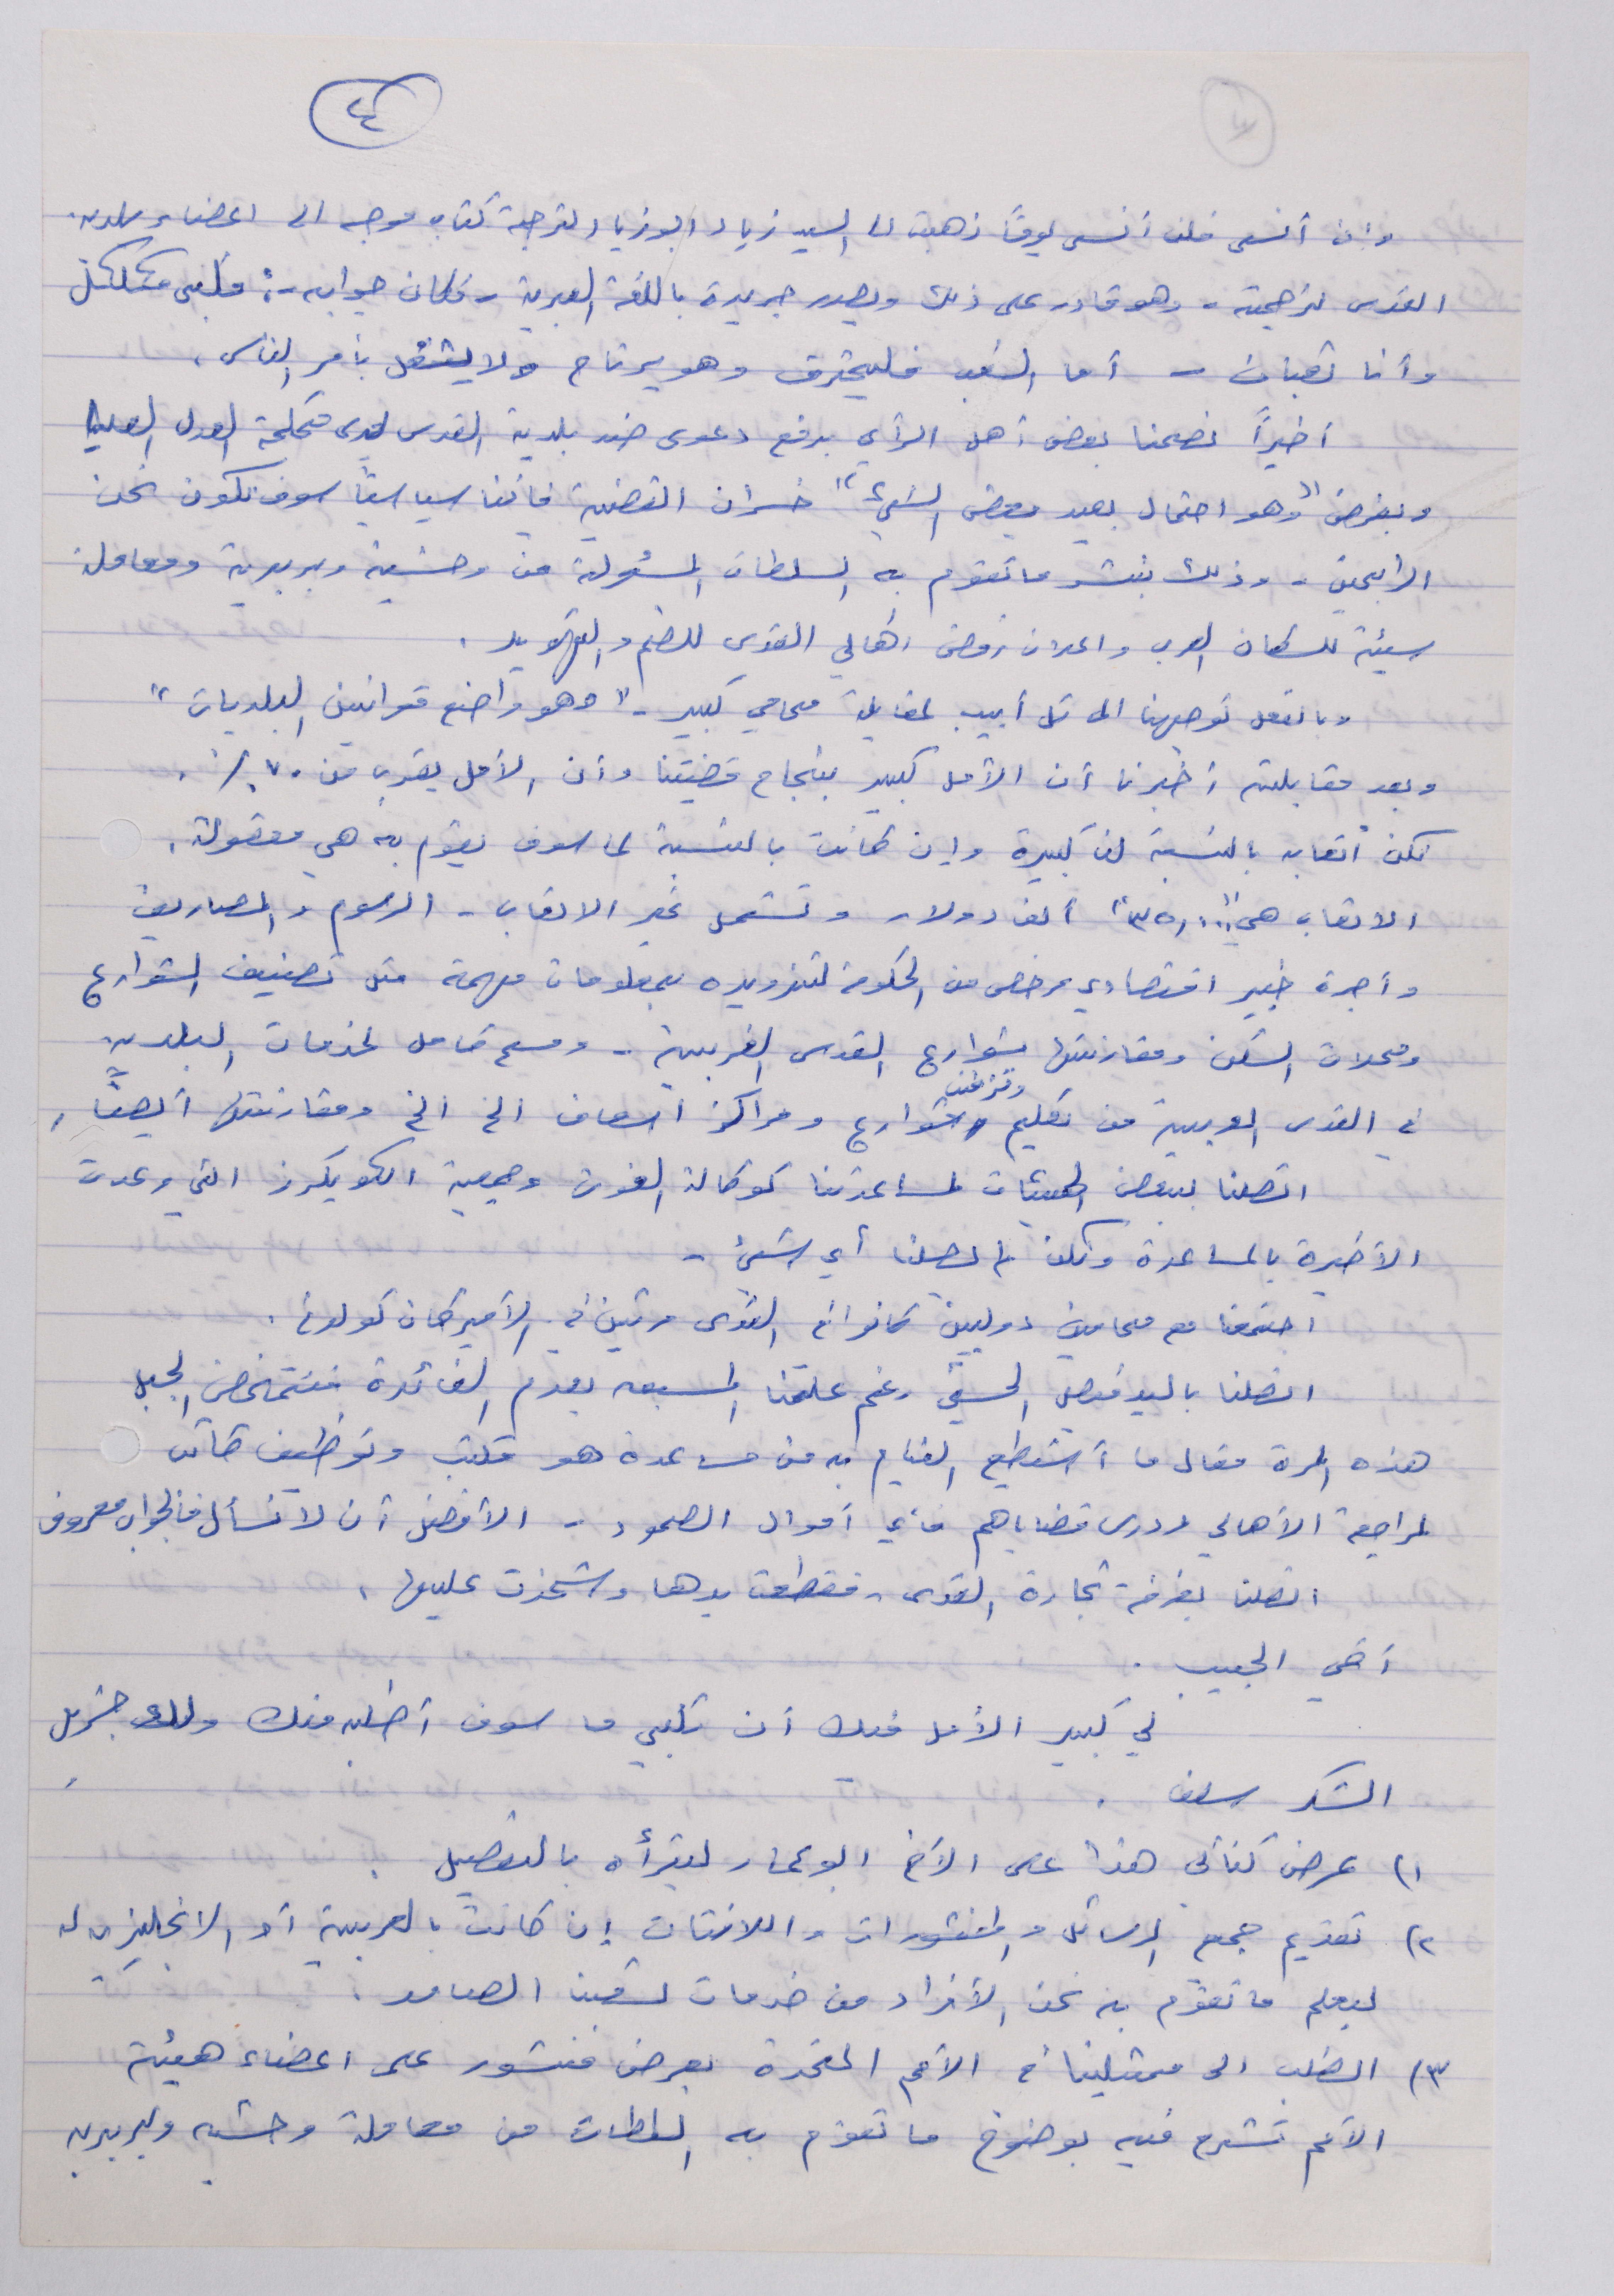 ٤
وان أنسى فلن أنسى يوماً ذهبت الى السيد زياد ابو زياد لترجمة كتاب موجه الى اعضاء بلدية
القدس لترجمته - وهو قادر على ذلك ويصدر جريدة باللغة العبرية - فكان جوابه -:
وأنا تعبان - أما الشعب فليحترق وهو يرتاح ولا يشتغل بأمر الناس .
أخيراً نصحنا بعض أهل الرأي برفع دعوى ضد بلدية القدس لدى محكمة العدل العليا
وبفرض "وهو احتمال بعيد بعض الشيء" خسران القضية فاننا سياسياً سوف نكون نحن
الرابحين - وذلك بنشر ما تقوم به السلطات المسؤولة من وحشية وبربرية ومعاملة
سيئة للسكان العرب واعلان رفض اهالي القدس للضم والتهويد .
وبالفعل توجهنا الى تل أبيب لمقابلة محامي كبير - "وهو واضع قوانين البلديات"
وبعد مقابلته أخبرنا أن الأمل كبير بنجاح قضيتنا وأن الأمل يقرب من ٧٠٪ .
لكن أتعابه بالنسبة لنا كبيرة وإن كانت بالنسبة لما سوف يقوم به هي معقولة .
الاتعاب هي "٣٥,٠٠٠" ألف دولار وتشمل غير الاتعاب - الرسوم والمصاريف
وأجرة خبير اقتصادي مرخص من الحكومة لتزويده بمعلومات مهمة مثل تصنيف الشوارع
ومحلات السكن ومقارنتها بشوارع القدس الغربية - ومسح كامل لخدمات البلدية
في القدس العربية من تعليم وتنظيف شوارع ومراكز اسعاف الخ الخ ومقارنتها أيضاً .
اتصلنا ببعض الهيئات لمساعدتنا كوكالة الغوث وجمعية الكويكرز التي وعدت
الأخيرة بالمساعدة ولكن لم يصلنا أي شيء -
اجتمعنا مع محامين دوليين كانوا في القدس مرتين في الأميركان كولوني .
اتصلنا بالسيد فيصل الحسيني رغم علمنا المسبق بعدم الفائدة فتمخض الجبل
هذه المرة فقال ما أستطيع القيام به من مساعدة هو مكتب وتوظيف كاتب
لمراجعة الأهالي ودرس قضاياهم فأين أموال الصمود - الأفضل أن لا نسأل فالجواب معروف
اتصلنا بغرفة تجارة القدس - فقطعت يدها وشحذت عليها .
أخي الحبيب .
لي كبير الأمل فيك أن تلبي ما سوف أطلبه منك ولك جزيل
الشكر سلفا .
١) عرض كتابي هذا على الأخ ابو عمار ليقرأه بالتفصيل
٢) تقديم جميع الرسائل والمنشورات واللافتات إن كانت بالعربية أو الانجليزية له
ليعلم ما نقوم به نحن الأفراد من خدمات لشعبنا الصامد .
٣) الطلب الى ممثلينا في الأمم المتحدة بعرض منشور على اعضاء هيئة
الأمم تشرح فيه بوضوح ما تقوم به السلطات من معاملة وحشية وبربرية